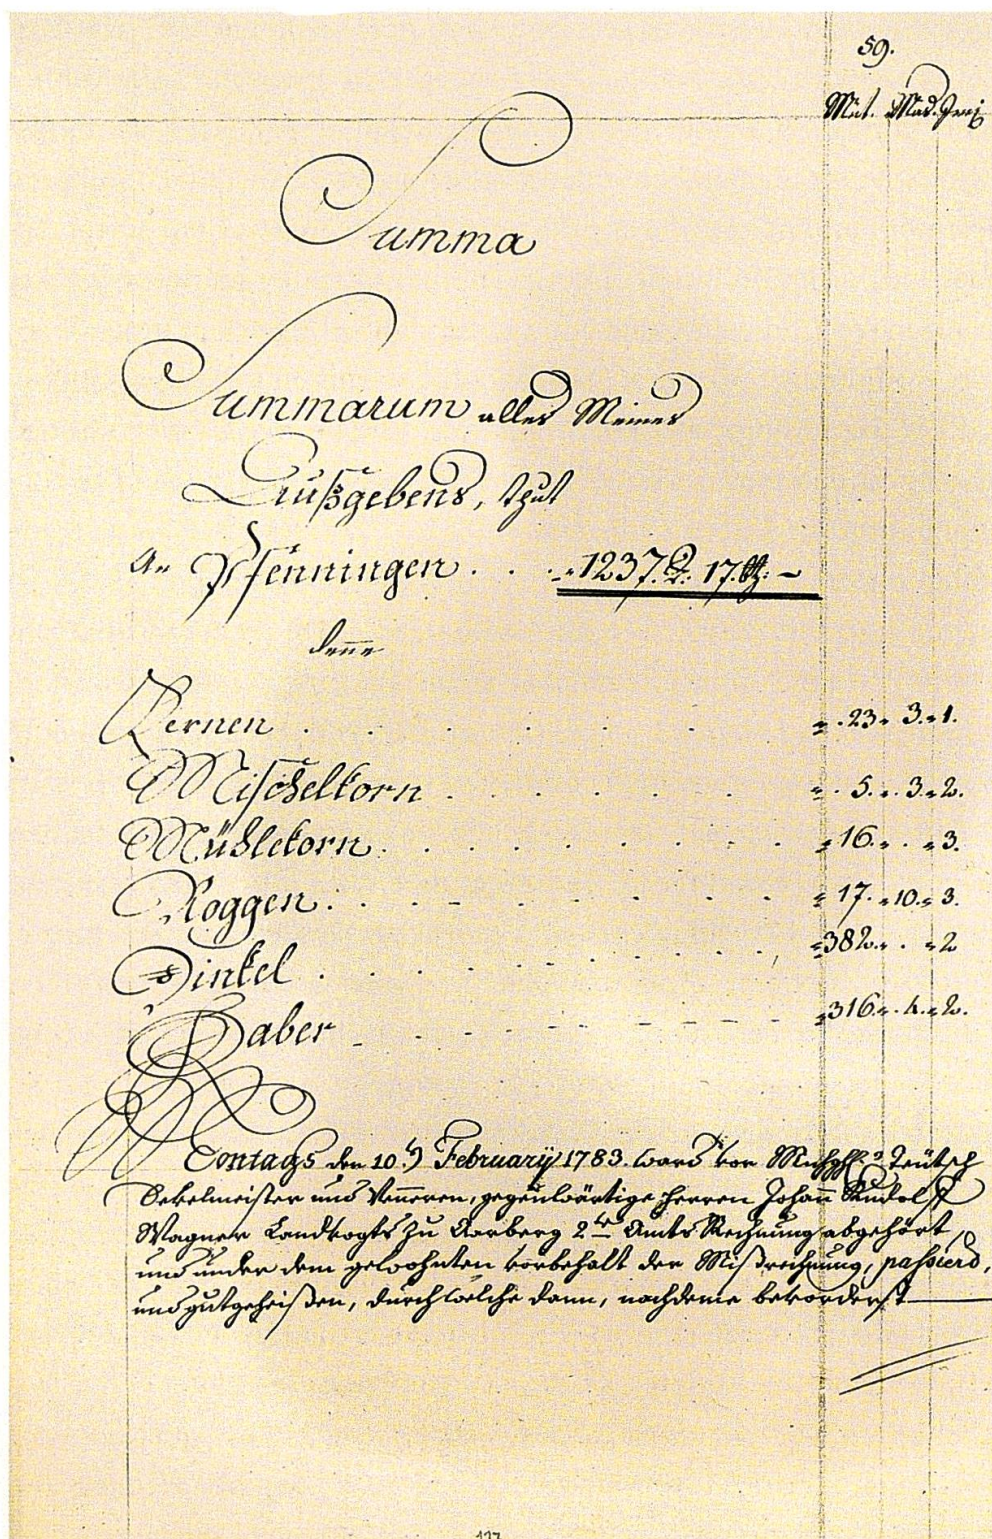 59.
Müt. Mäs. Jmj
Summa
Summarum aller Meines
Außgebens, thut
An Pfenningen . . . 1237. ₰. 17. ß: –
deñe
Kernen . . . . . . . 23. 3. 1.
Mischelkorn . . . . . . 5. 3. 2.
Mühlekorn . . . . . . . . 16. . 3.
Roggen . . . . . . . 17. 10. 3.
Dinkel . . . . . . . . . 382. . 2
Haber . . . . . . . 316. 4. 2.
Montags den 10.t) Februarÿ 1783. ward vor Mnhghh. Teütsch
Sekelmeister und Veñeren, gegenwärtige Herren Johañ Rudolff
Wagner Landvogts zu Aarberg 2te Amts Rechnung abgehört,
und under dem gewohnten vorbehalt der Mißrechnung, passierd,
und gutgeheißen, durch welche dann, nachdeme bevorderst